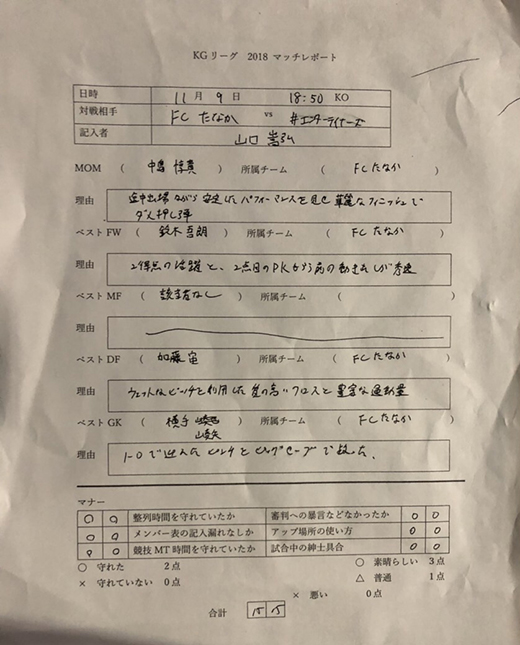 KGリーグ 2018 マッチレポート
日時 11月 9日 18:50 KO
対戦相手 FC たなか vs #エンターテイナーズ
記入者 山口 嵩弘
MOM ( 中島 惇貴 ) 所属チーム ( FC たなか )
理由 途中出場ながら安定したパフォーマンスを見せ華麗なフィニッシュで
ダメ押し弾
ベスト FW ( 鈴木 吾朗 ) 所属チーム ( FC たなか )
理由 2得点の活躍と、2点目のPKがう前の動き出しが秀逸
ベスト MF ( 該当者なし ) 所属チーム ( )
理由
ベスト DF ( 加藤 宙 ) 所属チーム ( FC たなか )
理由 ウェットなピッチを利用した質の高いクロスと豊富な運動量
ベスト GK ( 横手 ) 所属チーム ( FC たなか )
理由 1-0で迎えたピンチをビッグセーブで救った.
マナー
○ ○ 整列時間を守れていたか 審判への暴言などなかったか ○ ○
○ ○ メンバー表の記入漏れなしか アップ場所の使い方 ○ ○
○ ○ 競技 MT 時間を守れていたか 試合中の紳士具合 ○ ○
○ 守れた 2点 ○ 素晴らしい 3点
× 守れていない 0点 △ 普通 1点
× 悪い 0点
合計 15 15